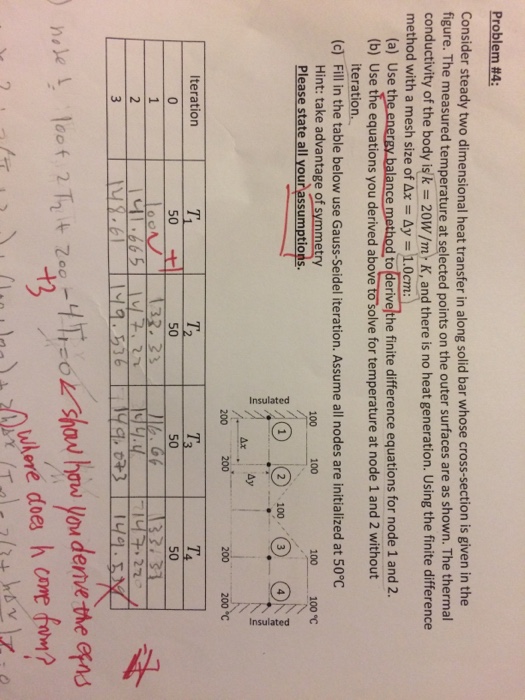 Problem #4:
Consider steady two dimensional heat transfer in along solid bar whose cross-section is given in the
figure. The measured temperature at selected points on the outer surfaces are as shown. The thermal
conductivity of the body is k = 20W/m·K, and there is no heat generation. Using the finite difference
method with a mesh size of Δx = Δy = 1.0cm:
(a) Use the energy balance method to derive the finite difference equations for node 1 and 2.
(b) Use the equations you derived above to solve for temperature at node 1 and 2 without
iteration.
(c) Fill in the table below use Gauss-Seidel iteration. Assume all nodes are initialized at 50°C
Hint: take advantage of symmetry
Please state all your assumptions.
100 100 100 100 °C
Insulated
1 2 100 3 4
Insulated
Δx Δy
200 200 200 200 °C
Iteration T1 T2 T3 T4
0 50 50 50 50
1 100 +1 133.33 116.66 133.33
2 141.665 147.22
3 148.61 149.536 149.073
-7
node 1: 100+2T2+200-4T1=0
show how you derive the eqns
+3
where does h come from?